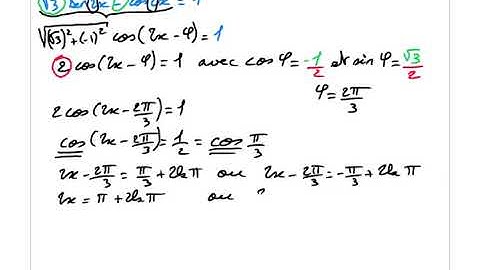 √3 sin 2x - cos 2x = 1
√((√3)² + (-1)²) cos(2x - φ) = 1
2 cos(2x - φ) = 1 avec cos φ = -1/2 et sin φ = √3/2
φ = 2π/3
2 cos(2x - 2π/3) = 1
cos(2x - 2π/3) = 1/2 = cos π/3
2x - 2π/3 = π/3 + 2kπ ou 2x - 2π/3 = -π/3 + 2kπ
2x = π + 2kπ ou